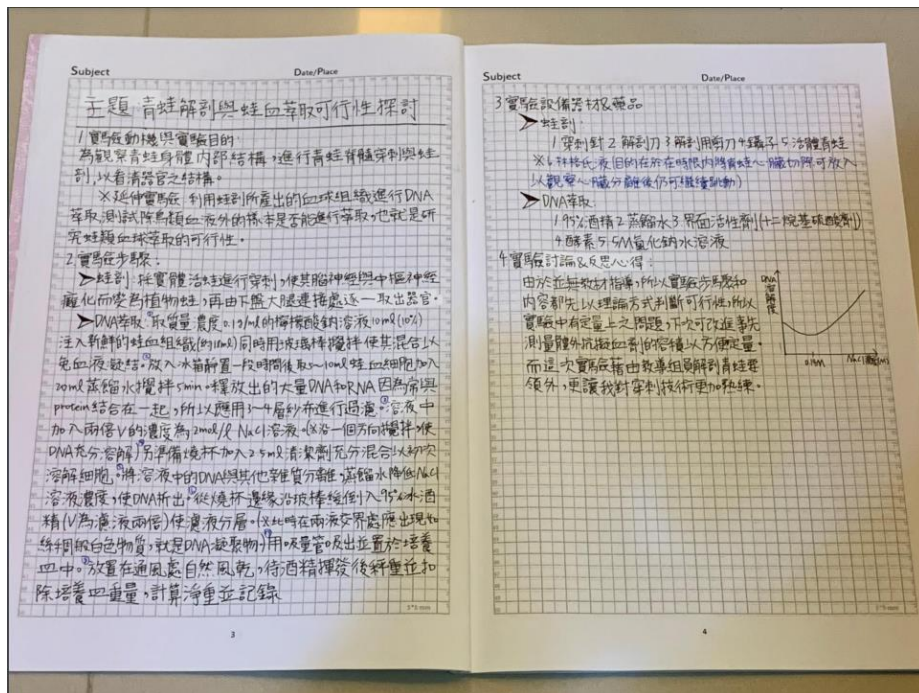 Subject
Date/Place
主題:青蛙解剖與蛙血萃取可行性探討
1.實驗動機與實驗目的:
為觀察青蛙身體內部結構,進行青蛙脊髓穿刺與蛙
剖,以看清器官之結構。
※延伸實驗:利用蛙剖所產出的血球組織進行DNA
萃取,測試除鳥類血液外的樣本是否能進行萃取,也就是研
究蛙類血球萃取的可行性。
2.實驗步驟:
➤蛙剖:採實體活蛙進行穿刺,使其腦神經與中樞神經
癱化而變為植物蛙,再由下盤大腿連接處逐一取出器官。
➤DNA萃取:取質量濃度0.1g/ml的檸檬酸鈉溶液10ml(10%)
注入新鮮的蛙血組織(約18ml)同時用玻璃棒攪拌使其混合以
免血液凝結。放入冰箱靜置一段時間後取5~10ml蛙血細胞加入
20ml蒸餾水攪拌5min。釋放出的大量DNA和RNA因為常與
protein結合在一起,所以應用3~4層紗布進行過濾。溶液中
加入兩倍V的濃度為2mol/l NaCl溶液。(※沿一個方向攪拌,使
DNA充分溶解)另準備燒杯加入2.5ml清潔劑充分混合以初次
溶解細胞。將溶液中的DNA與其他雜質分離,蒸餾水降低NaCl
溶液濃度,使DNA析出。從燒杯邊緣沿玻棒緩倒入95%冰酒
精(V為濾液兩倍)使濾液分層。(※此時在兩液交界處應出現如
絲綢般白色物質,就是DNA凝聚物)用吸量管吸出並置於培養
皿中。放置在通風處自然風乾,待酒精揮發後秤重並扣
除培養皿重量,計算淨重並記錄
5*5 mm
3
Subject
Date/Place
3.實驗設備器材&藥品
➤蛙剖:
1.穿刺針 2.解剖刀 3.解剖用剪刀 4.鑷子 5.活體青蛙
※6.林格氏液(目的在於在時限內將青蛙心臟切除可放入
以觀察心臟分離後仍可繼續跳動)
➤DNA萃取:
1.95%酒精 2.蒸餾水 3.界面活性劑(十二烷基磺酸劑)
4.酵素 5.5M氯化鈉水溶液
4.實驗討論&反思心得:
由於並無教材指導,所以實驗步驟和
內容都先以理論方式判斷可行性,所以
實驗中有定量上之問題,下次可改進事先
測量體外抗凝血劑的容積以方便定量。
而這次實驗藉由教導組員解剖青蛙要
領外,更讓我對穿刺技術更加熟練。
DNA
溶解度
0.14M
NaCl
5*5 mm
4